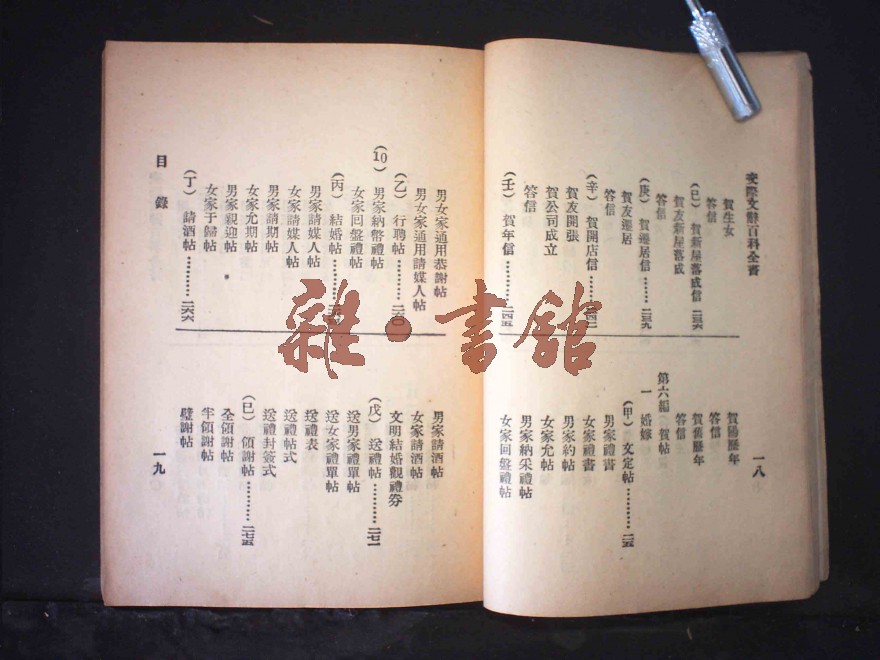 交際文辭百科全書
賀生女
答信
(己) 賀新屋落成信………二三六
賀友新屋落成
答信
(庚) 賀遷居信………二三九
賀友遷居
答信
(辛) 賀開店信………二四二
賀友開張
賀公司成立
答信
(壬) 賀年信………二四五
賀陽歷年
答信
賀舊歷年
答信
第六編 賀帖
一 婚嫁
(甲) 文定帖………二五
男家禮書
女家禮書
男家約帖
女家允帖
男家納采禮帖
女家回盤禮帖
一八
男女家通用恭謝帖
男女家通用請媒人帖
(乙) 行聘帖………二六〇
男家納幣禮帖
(10)
女家回盤禮帖
(丙) 結婚帖
男家請媒人帖
女家請媒人帖
男家請期帖
女家允期帖
男家親迎帖
女家于歸帖
(丁) 請酒帖………二六六
目錄
男家請酒帖
女家請酒帖
文明結婚觀禮券
(戊) 送禮帖………二七一
送男家禮單帖
送女家禮單帖
送禮表
送禮帖式
送禮封簽式
(己) 領謝帖………二七五
全領謝帖
半領謝帖
璧謝帖
一九
雜·書館